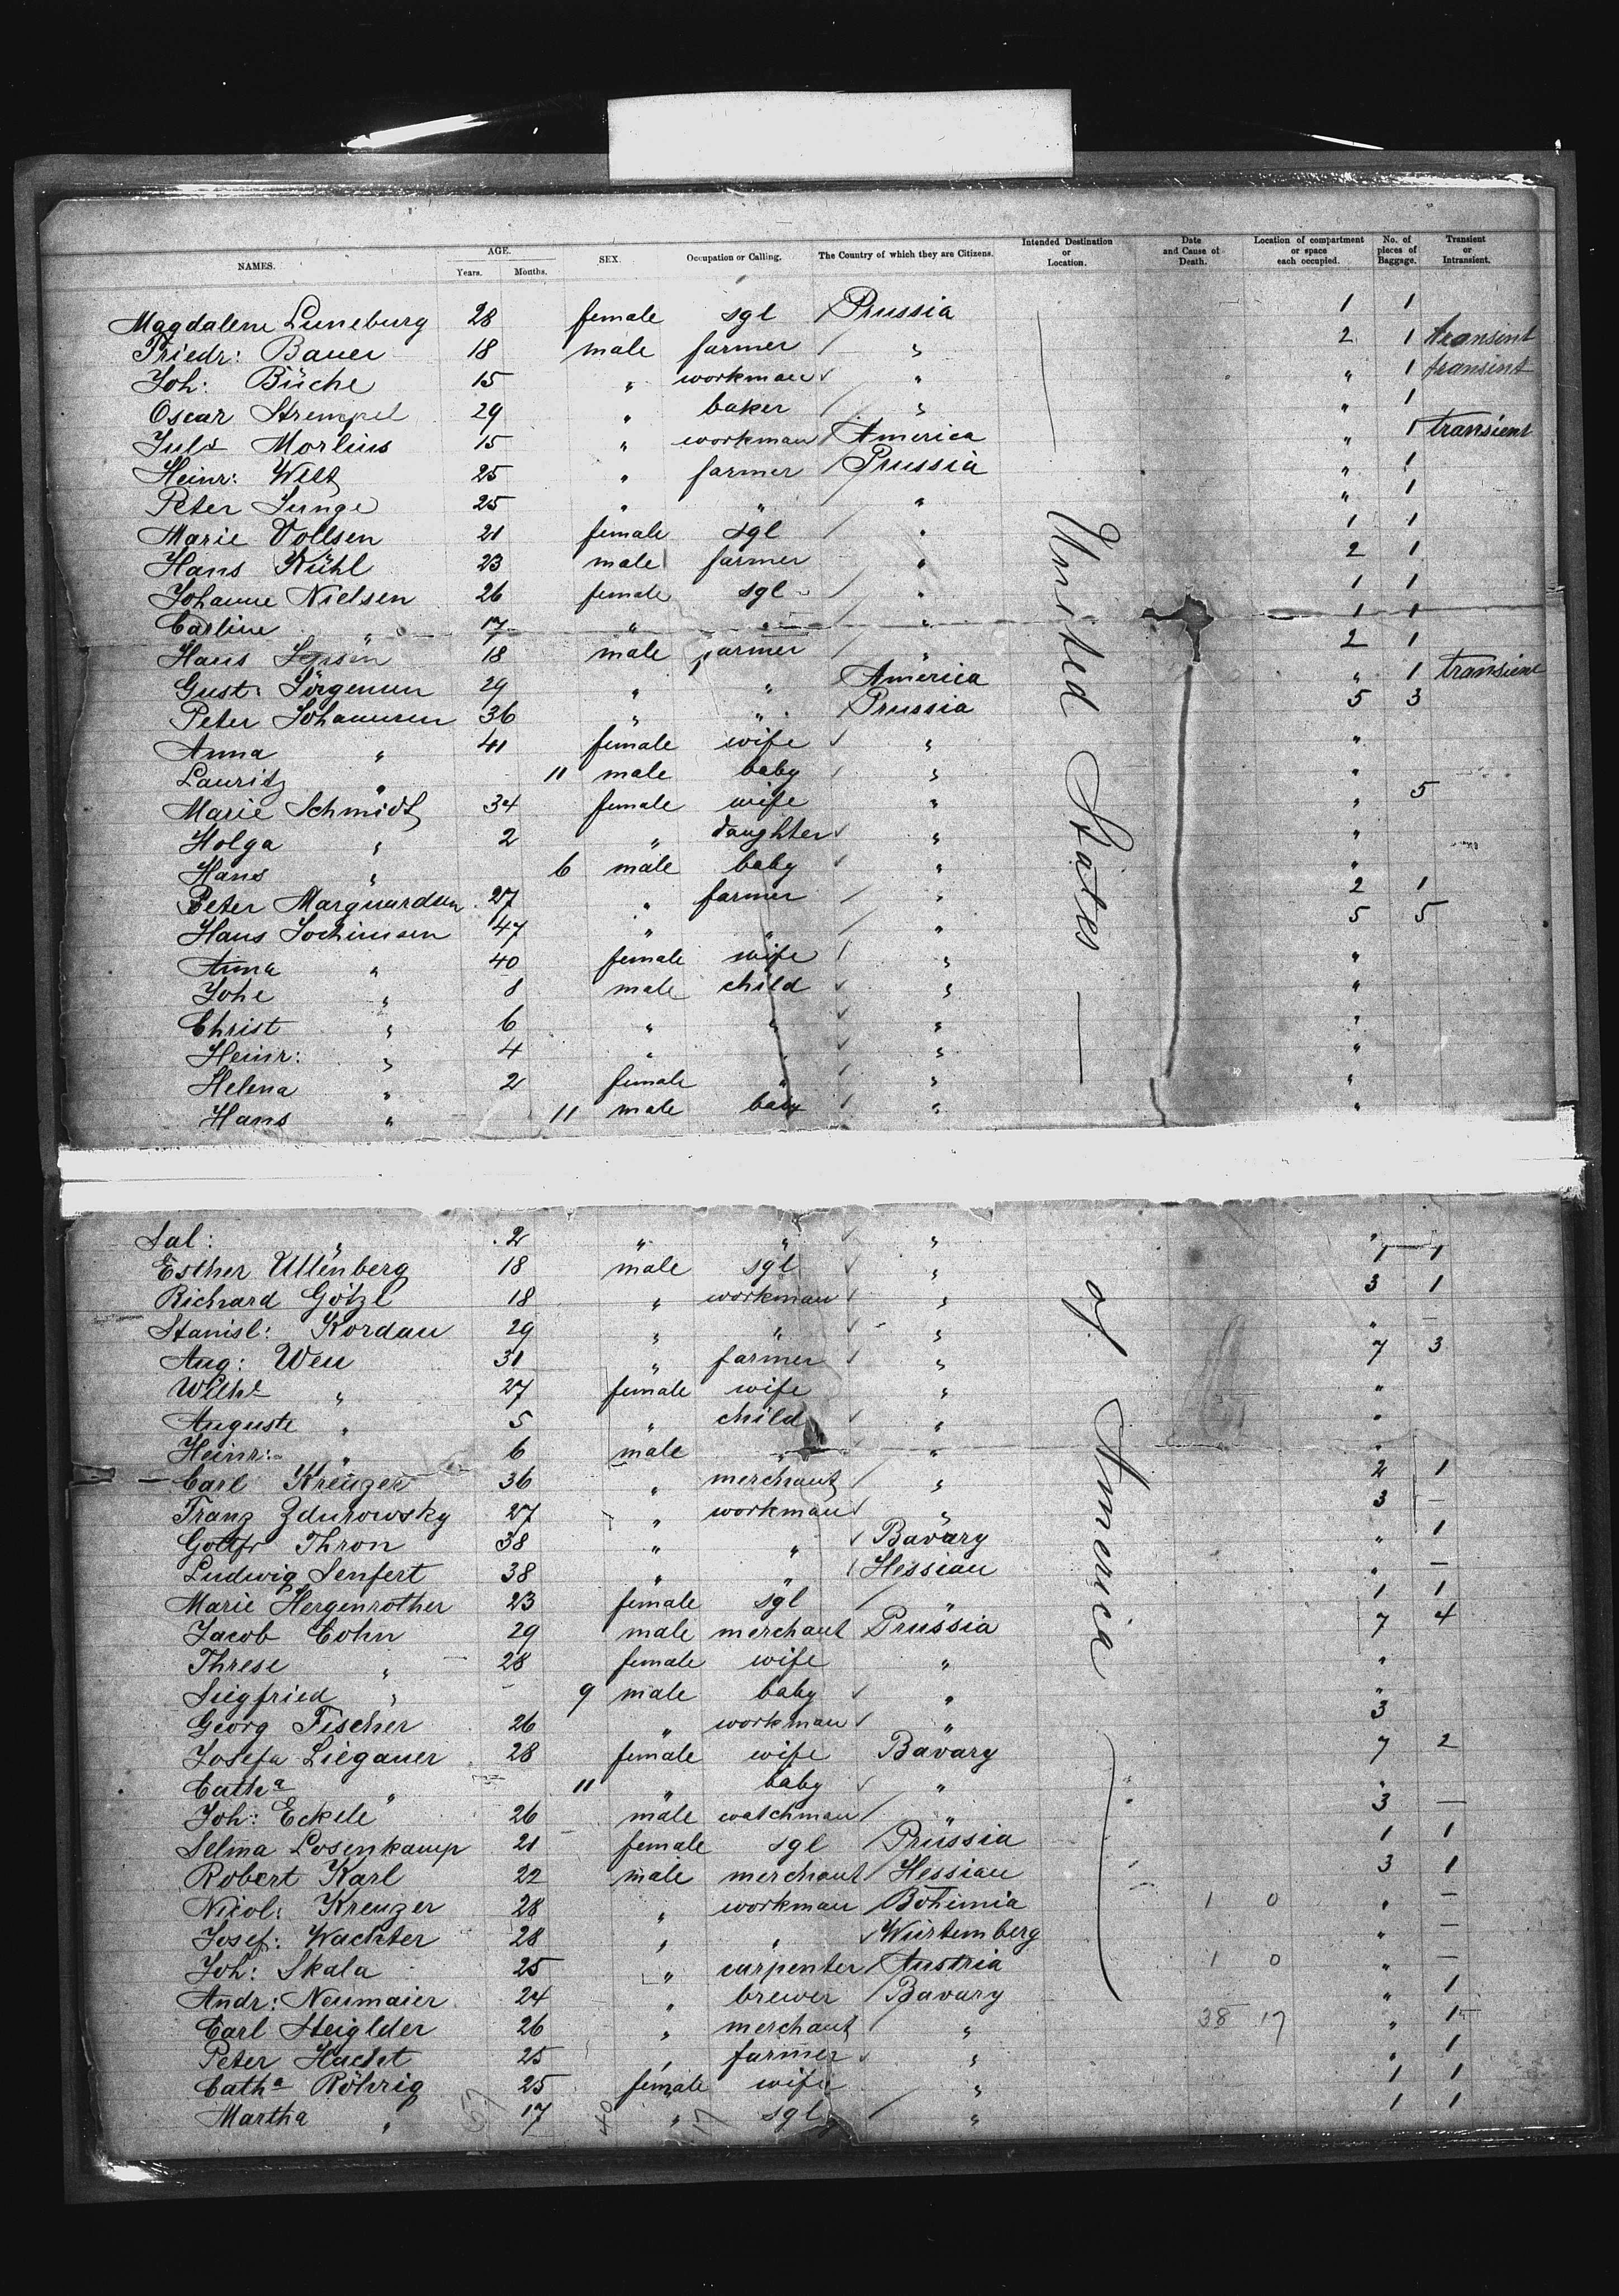 NAMES. AGE. Years. Months. SEX. Occupation or Calling. The Country of which they are Citizens. Intended Destination or Location. Date and Cause of Death. Location of compartment or space each occupied. No. of pieces of Baggage. Transient or Intransient.
Magdalene Luneburg 28 female sgl Prussia 1 1
Friedr: Bauer 18 male farmer " 2 1 transint
Joh: Büche 15 " workman " " 1 transint
Oscar Strempel 29 " baker " " 1
Juls Morlius 15 " workman America " 1 transient
Heinr: Witt 25 " farmer Prussia " 1
Peter Junge 25 " " " " 1
Marie Vollsen 21 female sgl " 1 1
Hans Kühl 23 male farmer " 2 1
Johanne Nielsen 26 female sgl " 1 1
Carline " 17 " " " 1 1
Hans 18 male farmer " 2 1
Gust: Jörgensen 29 " " America " 1 transient
Peter Johannsen 36 " " Prussia 5 3
Anna " 41 female wife " "
Lauritz " 11 male baby " "
Marie Schmidt 34 female wife " " 5
Holga " 2 " daughter " "
Hans " 6 male baby " "
Peter Marquardsen 27 " farmer " 2 1
Hans Jochimsen 47 " " " 5 5
Anna " 40 female wife " "
Johe " 8 male child " "
Christ " 6 " " " "
Heinr: " 4 " " " "
Helena " 2 female " " "
Hans " 11 male baby " "
United States —
Sal: " 2 " " " "
Esther Ullenberg 18 male sgl " 1 1
Richard Götzl 18 " workman " 3 1
Stanisl: Kordau 29 " " " " —
Aug: Weu 31 " farmer " 7 3
Wilhe " 27 female wife " "
Auguste " 5 " child " "
Heinr: " 6 male " " "
Carl Kreuzer 36 " merchant " 2 1
Franz Zdurowsky 27 " workman " 3 —
Gottfr Thron 38 " " Bavary " 1
Ludwig Senfert 38 " " Hessian " —
Marie Hergenrother 23 female sgl " 1 1
Jacob Cohn 29 male merchant Prussia 7 4
Threse " 28 female wife " "
Siegfried " 9 male baby " "
Georg Fischer 26 " workman " 3
Josefa Liegauer 28 female wife Bavary 7 2
Catha " 11 " baby " "
Joh: Eckele 26 male watchman " 3 —
Selma Losenkamp 21 female sgl Prussia 1 1
Robert Karl 22 male merchant Hessian 3 1
Nicol: Kreuzer 28 " workman Bohimia 1 0 " —
Josef: Wachter 28 " " Würtemberg " —
Joh: Skala 25 " carpenter Austria 1 0 " —
Andr: Neumaier 24 " brewer Bavary " 1
Carl Steiglder 26 " merchant " 38 17 " 1
Peter Hacht 25 " farmer " " 1
Catha Röhrig 25 female wife " 1 1
Martha " 17 " sgl " 1 1
of America